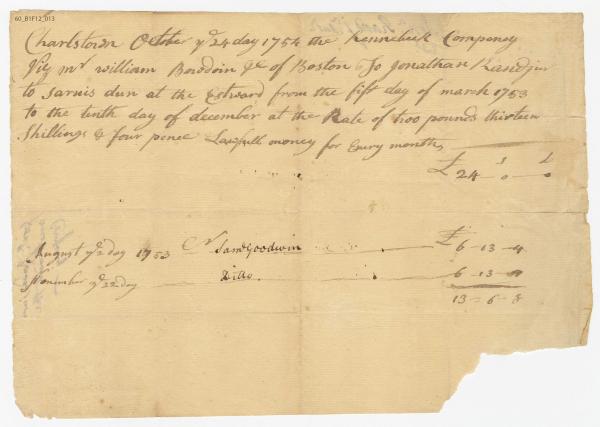 60_B1F12_013
Charlstown October ye 24 day 1754 the Kennebeck Compeney
Viz mr William Bowdoin &c of Boston to Jonathan
to sarvis dun at the Estward from the fift day of march 1753
to the tenth day of december at the Rate of two pounds thirteen
Shillings & four pence Lawfull money for Every month
£ 24 - 0 - 0
August ye 2 day 1753 Saml Goodwin £ 6 - 13 - 4
November ye 22 day Ditto 6 - 13 - 4
13 - 6 - 8